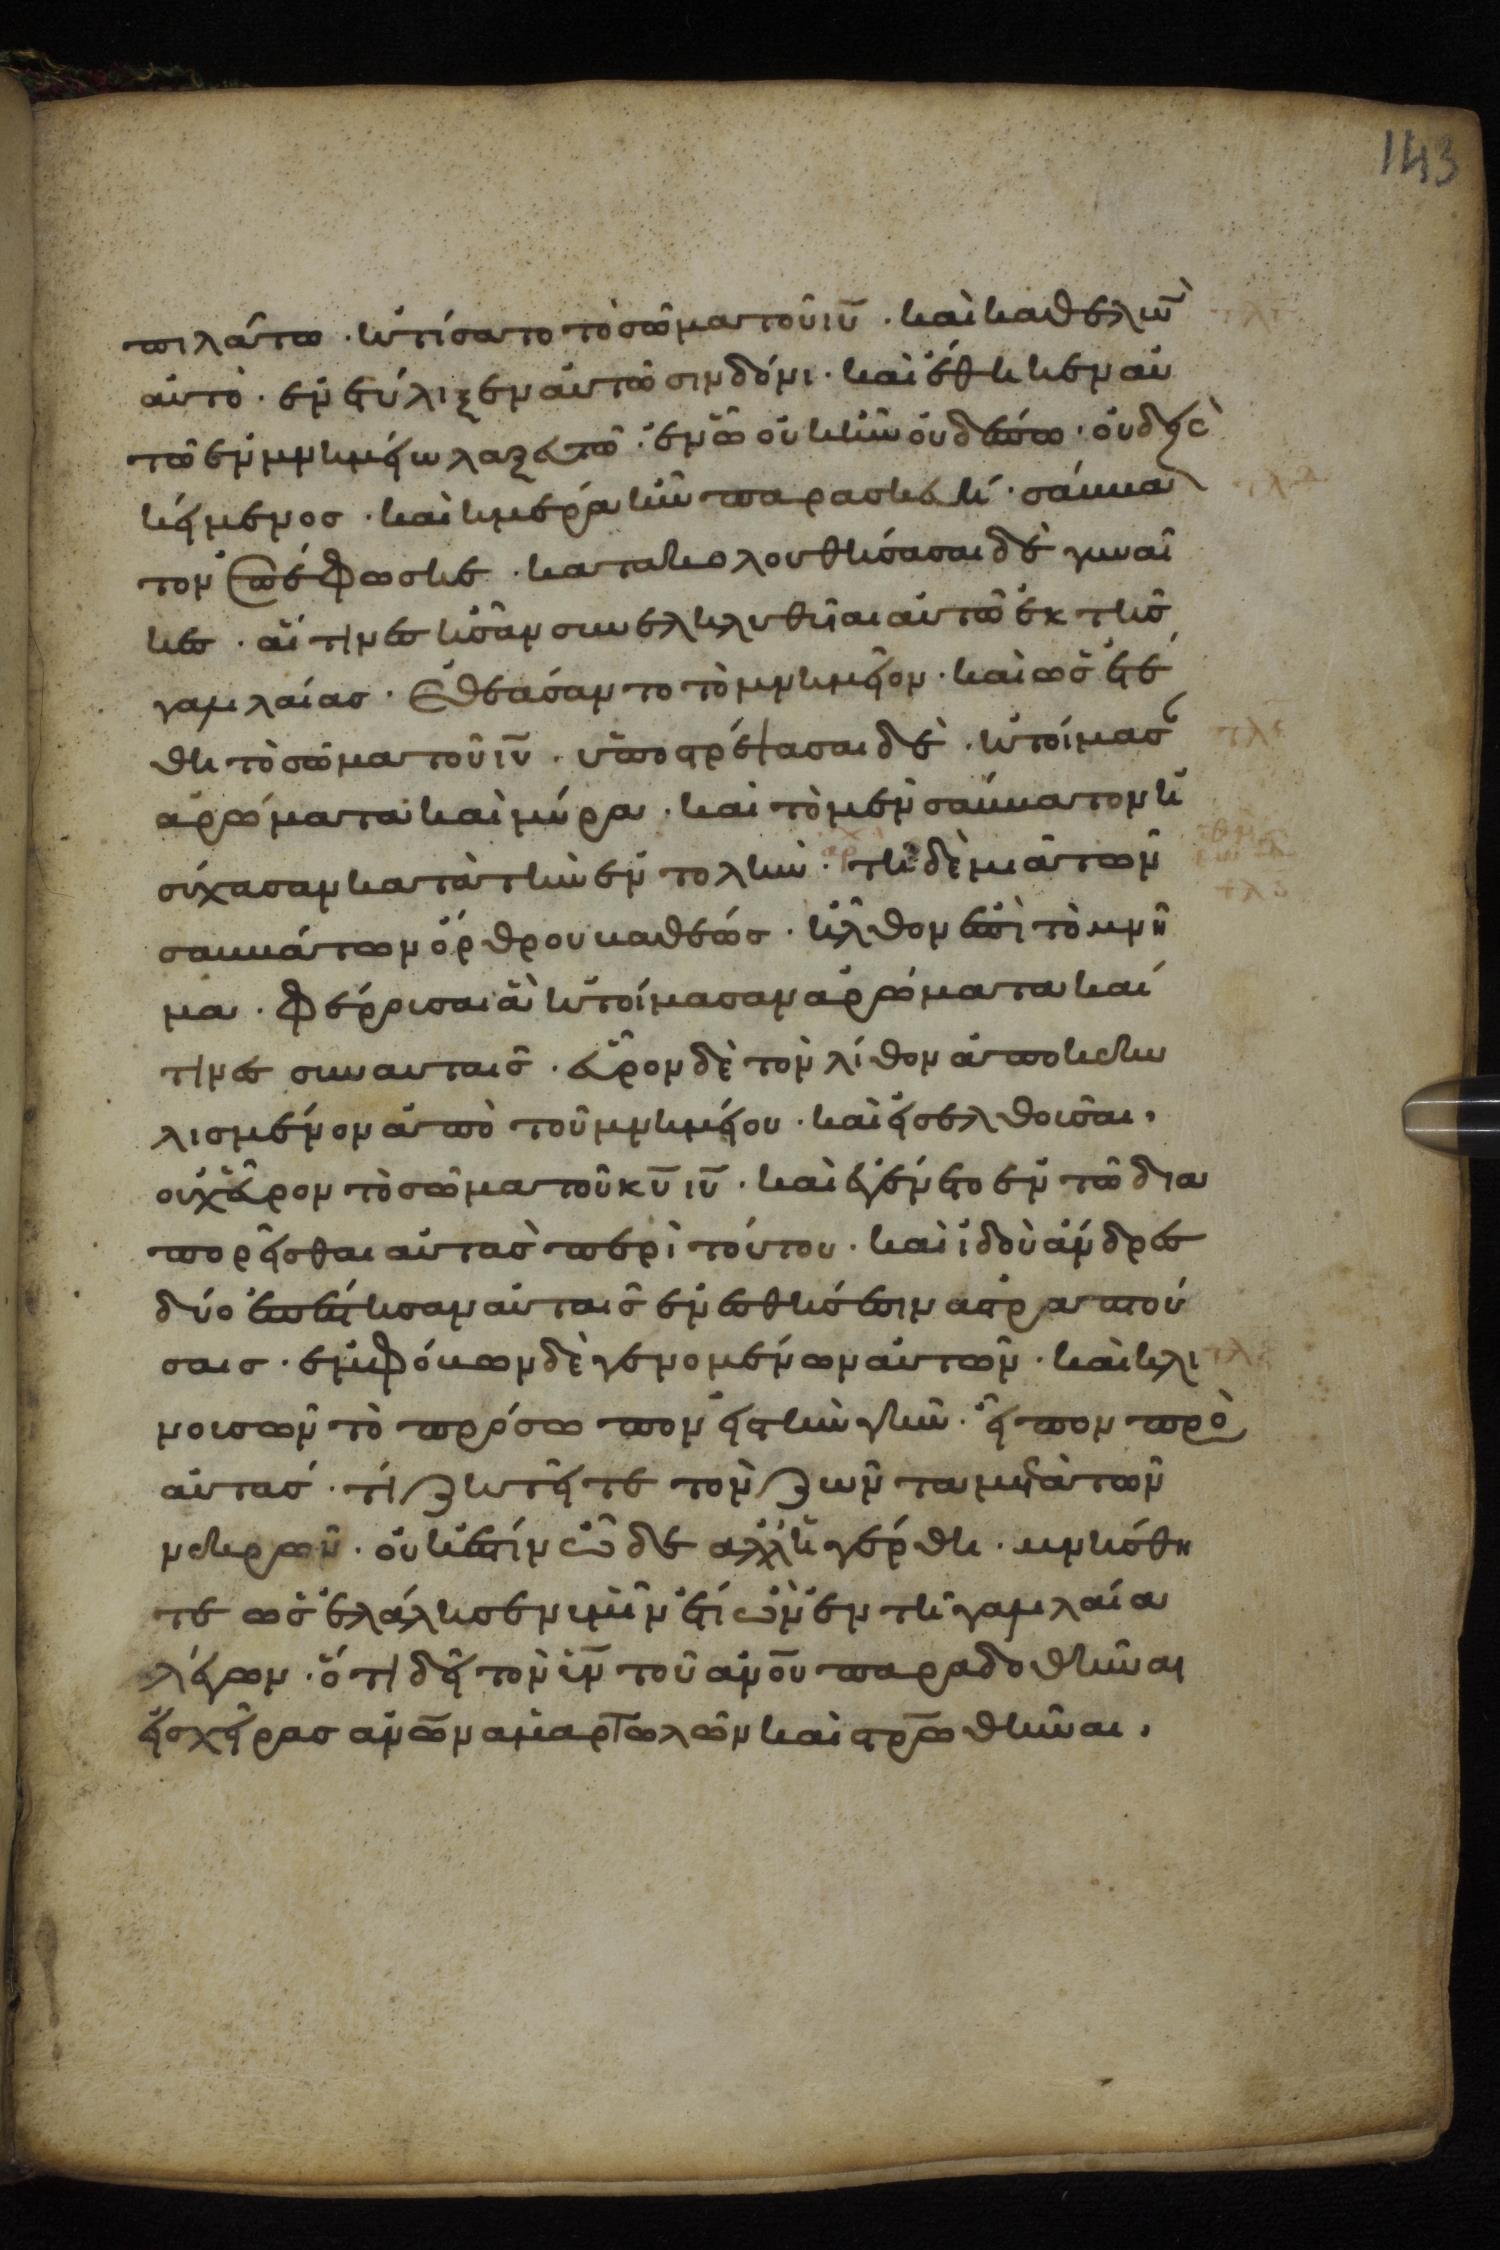 πιλάτω · ἠτίσατο τὸ σῶμα τοῦ ιῦ · καὶ καθελὼν
αὐτὸ · ἐνετύλιξεν αὐτῶ σινδόνι · καὶ ἔθηκεν αὐ
τῶ ἐν μνημείω λαξευτῶ · ἐν ὧ οὐκ ἦν οὐδέπω · οὐδεὶς
κείμενος · καὶ ἡμέρα ἦν παρασκευή · σάββα
τον ἐπέφωσκε · κατακολουθήσασαι δὲ γυναῖ
κες · αἵτινες ἦσαν συνεληλυθῆαι αὐτῶ ἐκ τῆς
γαλιλαίας · ἐθεάσαντο τὸ μνημεῖον · καὶ ὡς ἐτέ
θη τὸ σῶμα τοῦ ιῦ · ὑποστρέψασαι δὲ · ἠτοίμασαν
ἀρώματα καὶ μύρα · καὶ τὸ μὲν σάββατον ἡ
σύχασαν κατὰ τὴν ἐντολήν · τῆ δὲ μιᾶ τῶν
σαββάτων ὄρθρου βαθέως · ἦλθον ἐπὶ τὸ μνῆ
μα · φέρουσαι ἃ ἠτοίμασαν ἀρώματα καί
τινες σὺν αὐταῖς · εὗρον δὲ τὸν λίθον ἀποκεκυ
λισμένον ἀπὸ τοῦ μνημείου · καὶ εἰσελθοῦσαι,
οὐχ εὗρον τὸ σῶμα τοῦ κῦ ιῦ · καὶ ἐγένετο ἐν τῶ δια
πορεῖσθαι αὐτὰς περὶ τούτου · καὶ ἰδοὺ ἄνδρες
δύο ἐπέστησαν αὐταῖς ἐν ἐσθήσεσιν ἀστραπτού
σαις · ἐμφόβων δὲ γενομένων αὐτῶν · καὶ κλι
νουσῶν τὸ πρόσωπον εἰς τὴν γῆν · εἶπον πρὸς
αὐτάς · τί ζητεῖτε τὸν ζῶντα μετὰ τῶν
νεκρῶν · οὐκ ἔστιν ὧδε ἀλλ' ἠγέρθη · μνήσθη
τε ὡς ἐλάλησεν ὑμῖν ἔτι ὢν ἐν τῆ γαλιλαία
λέγων · ὅτι δεῖ τὸν υἱν τοῦ ανου παραδοθῆναι
εἰς χεῖρας ανων ἁμαρτωλῶν καὶ στρωθῆναι,
143